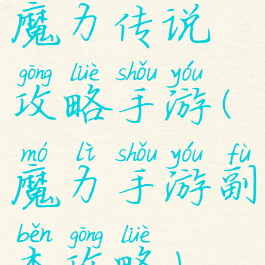 魔力传说
gōng lüè shǒu yóu
攻略手游(
mó lì shǒu yóu fù
魔力手游副
běn gōng lüè
本攻略)